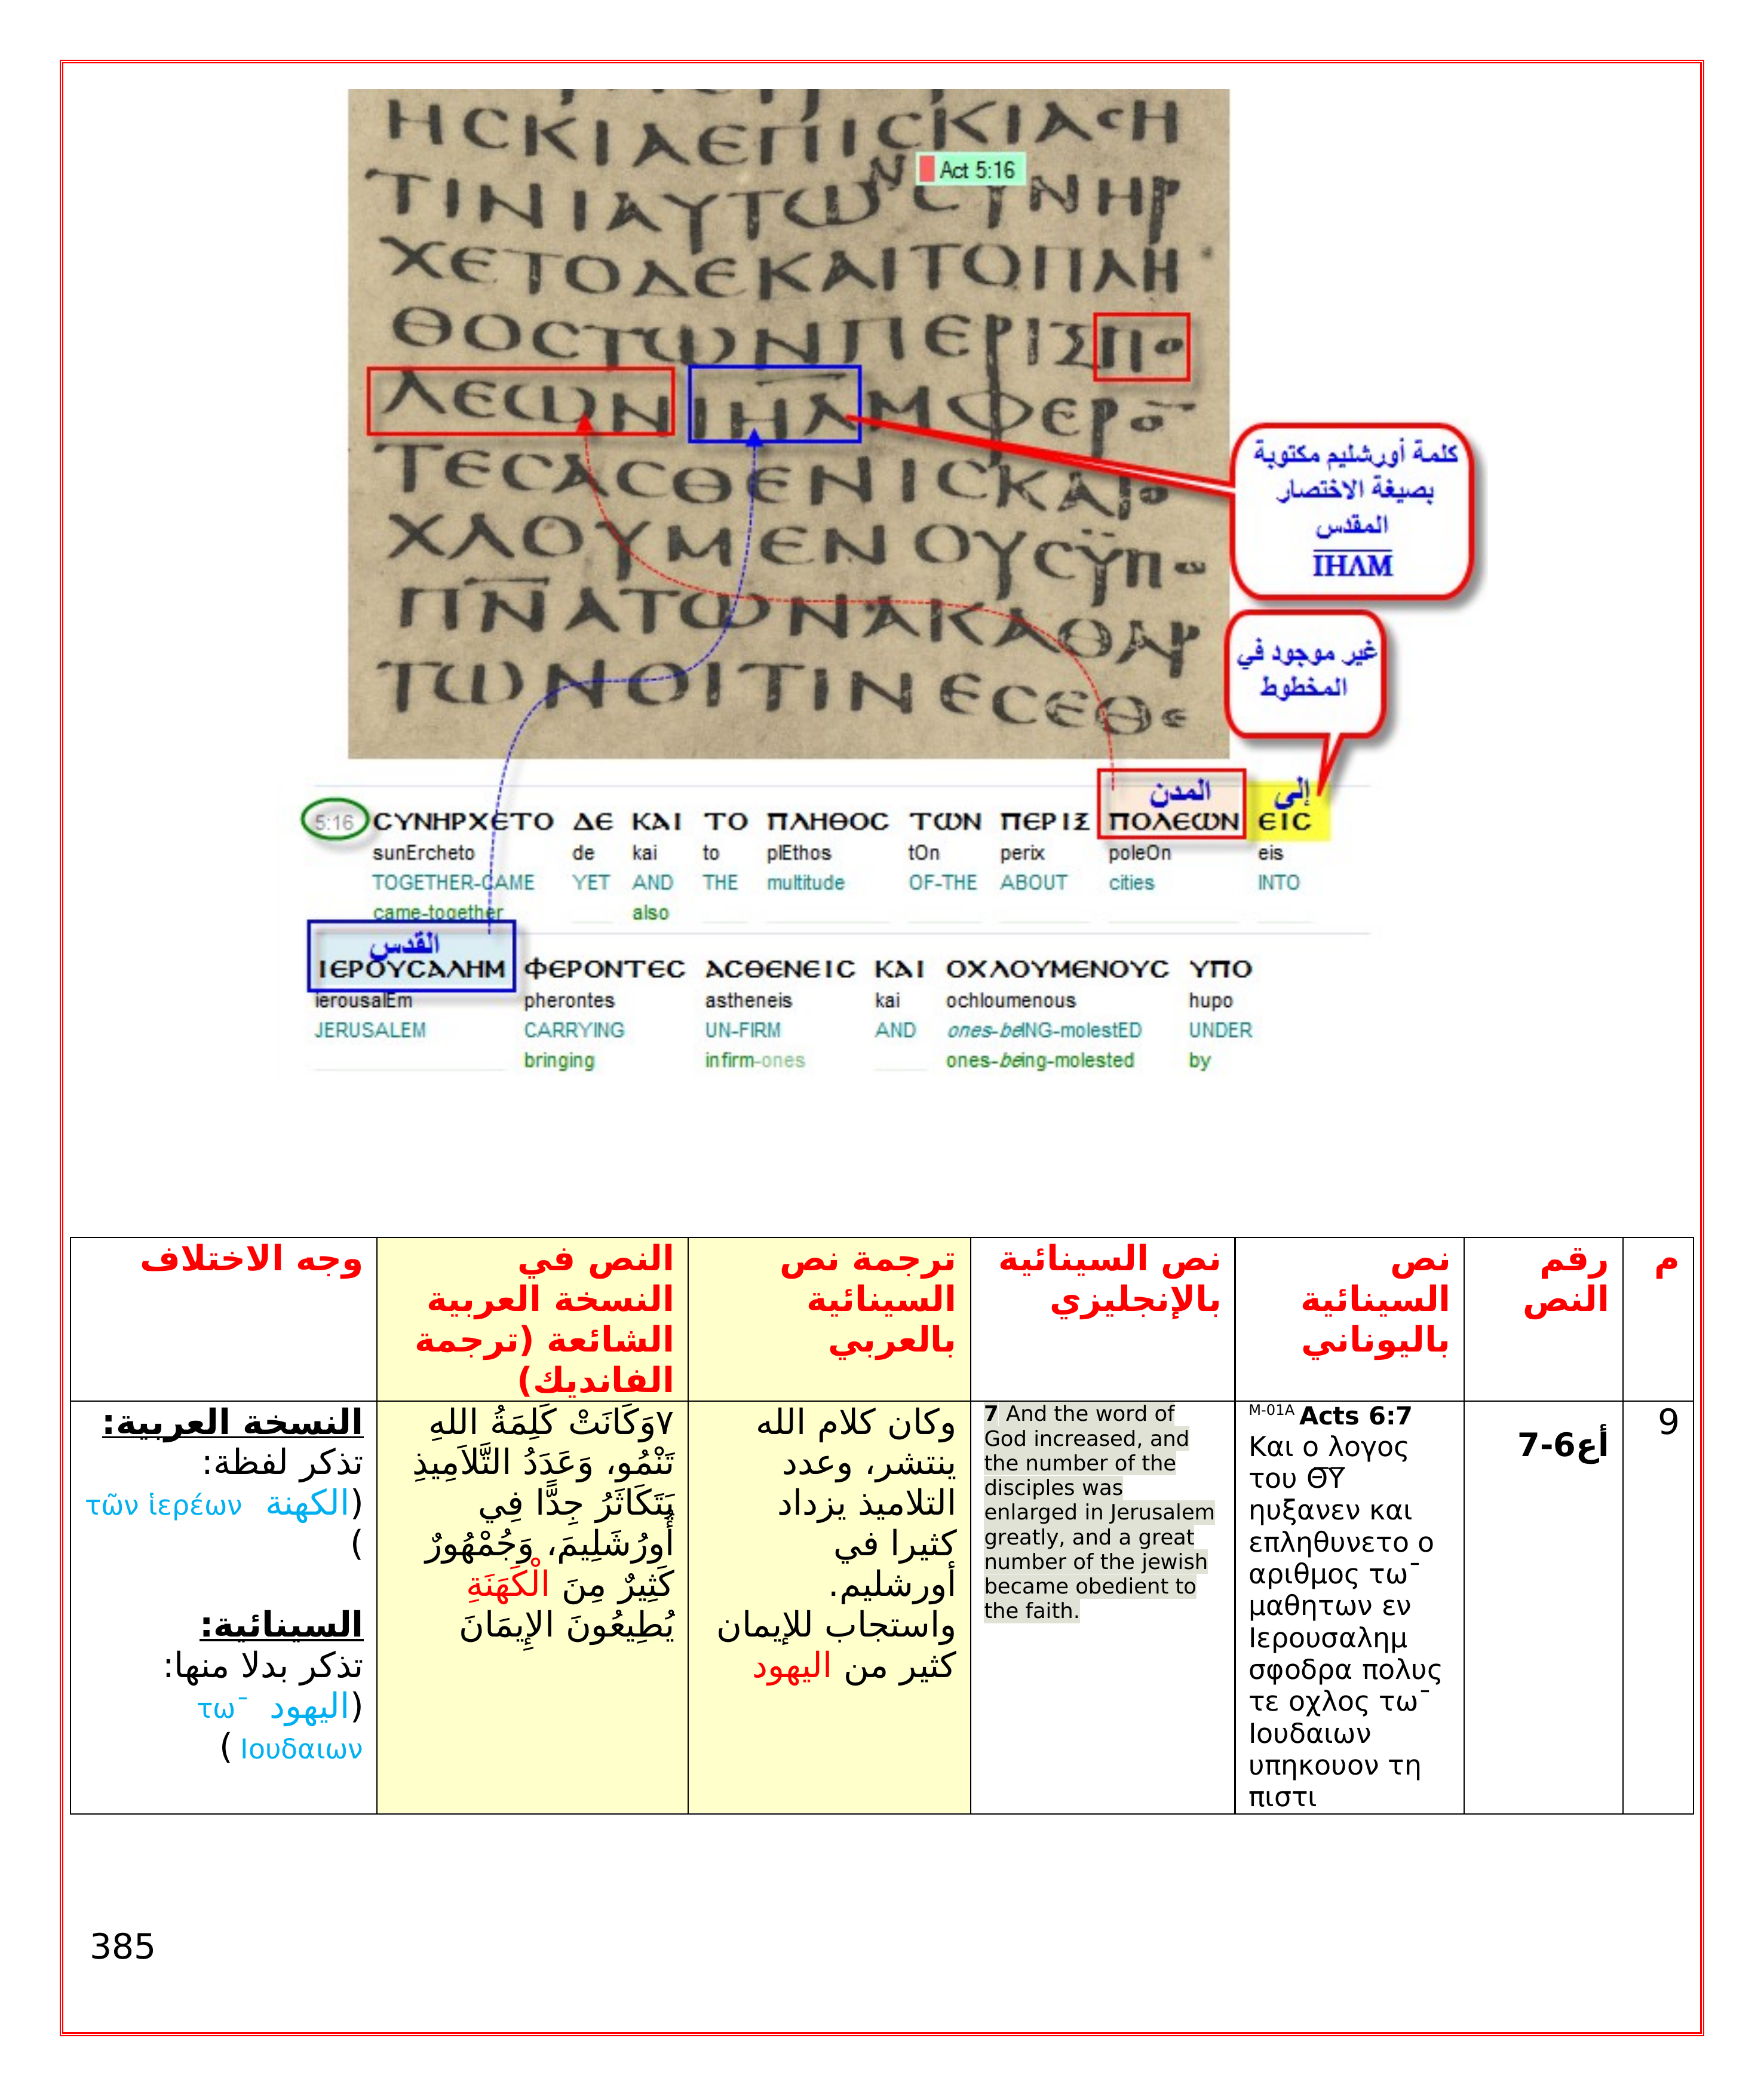 ΗϹΚΙΑΕΠΙϹΚΙΑϹΗ
Act 5:16
ΤΙΝΙΑΥΤΩΝϹΥΝΗΡ
ΧΕΤΟΔΕΚΑΙΤΟΠΛΗ
ΘΟϹΤΩΝΠΕΡΙΞΠΟ
ΛΕΩΝΙΗΛΜΦΕΡΟ̅
ΤΕϹΑϹΘΕΝΙϹΚΑΙΟ
ΧΛΟΥΜΕΝΟΥϹΫΠΟ
ΠΝΑΤΩΝΑΚΑΘΑΡ
ΤΩΝΟΙΤΙΝΕϹΕΘΕ
كلمة أورشليم مكتوبة
بصيغة الاختصار
المقدس
ΙΗΛΜ
غير موجود في
المخطوط
المدن
إلى
5:16 ϹΥΝΗΡΧΕΤΟ ΔΕ ΚΑΙ ΤΟ ΠΛΗΘΟϹ ΤΩΝ ΠΕΡΙΞ ΠΟΛΕΩΝ ΕΙϹ
sunErcheto de kai to plEthos tOn perix poleOn eis
TOGETHER-CAME YET AND THE multitude OF-THE ABOUT cities INTO
came-together also
القدس
ΙΕΡΟΥϹΑΛΗΜ ΦΕΡΟΝΤΕϹ ΑϹΘΕΝΕΙϹ ΚΑΙ ΟΧΛΟΥΜΕΝΟΥϹ ΥΠΟ
ierousalEm pherontes astheneis kai ochloumenous hupo
JERUSALEM CARRYING UN-FIRM AND ones-beING-molestED UNDER
bringing infirm-ones ones-being-molested by
م
رقم
النص
نص
السينائية
باليوناني
نص السينائية
بالإنجليزي
ترجمة نص
السينائية
بالعربي
النص في
النسخة العربية
الشائعة (ترجمة
الفانديك)
وجه الاختلاف
9
أع6-7
M-01A Acts 6:7
Και ο λογος
του Θ̅Υ̅
ηυξανεν και
επληθυνετο ο
αριθμος τω¯
μαθητων εν
Ιερουσαλημ
σφοδρα πολυς
τε οχλος τω¯
Ιουδαιων
υπηκουον τη
πιστι
7 And the word of
God increased, and
the number of the
disciples was
enlarged in Jerusalem
greatly, and a great
number of the jewish
became obedient to
the faith.
وكان كلام الله
ينتشر، وعدد
التلاميذ يزداد
كثيرا في
أورشليم.
واستجاب للإيمان
كثير من اليهود
٧وَكَانَتْ كَلِمَةُ اللهِ
تَنْمُو، وَعَدَدُ التَّلاَمِيذِ
يَتَكَاثَرُ جِدًّا فِي
أُورُشَلِيمَ، وَجُمْهُورٌ
كَثِيرٌ مِنَ الْكَهَنَةِ
يُطِيعُونَ الإِيمَانَ
النسخة العربية:
تذكر لفظة:
(الكهنة τῶν ἱερέων
)
السينائية:
تذكر بدلا منها:
(اليهود τω¯
Ιουδαιων )
385